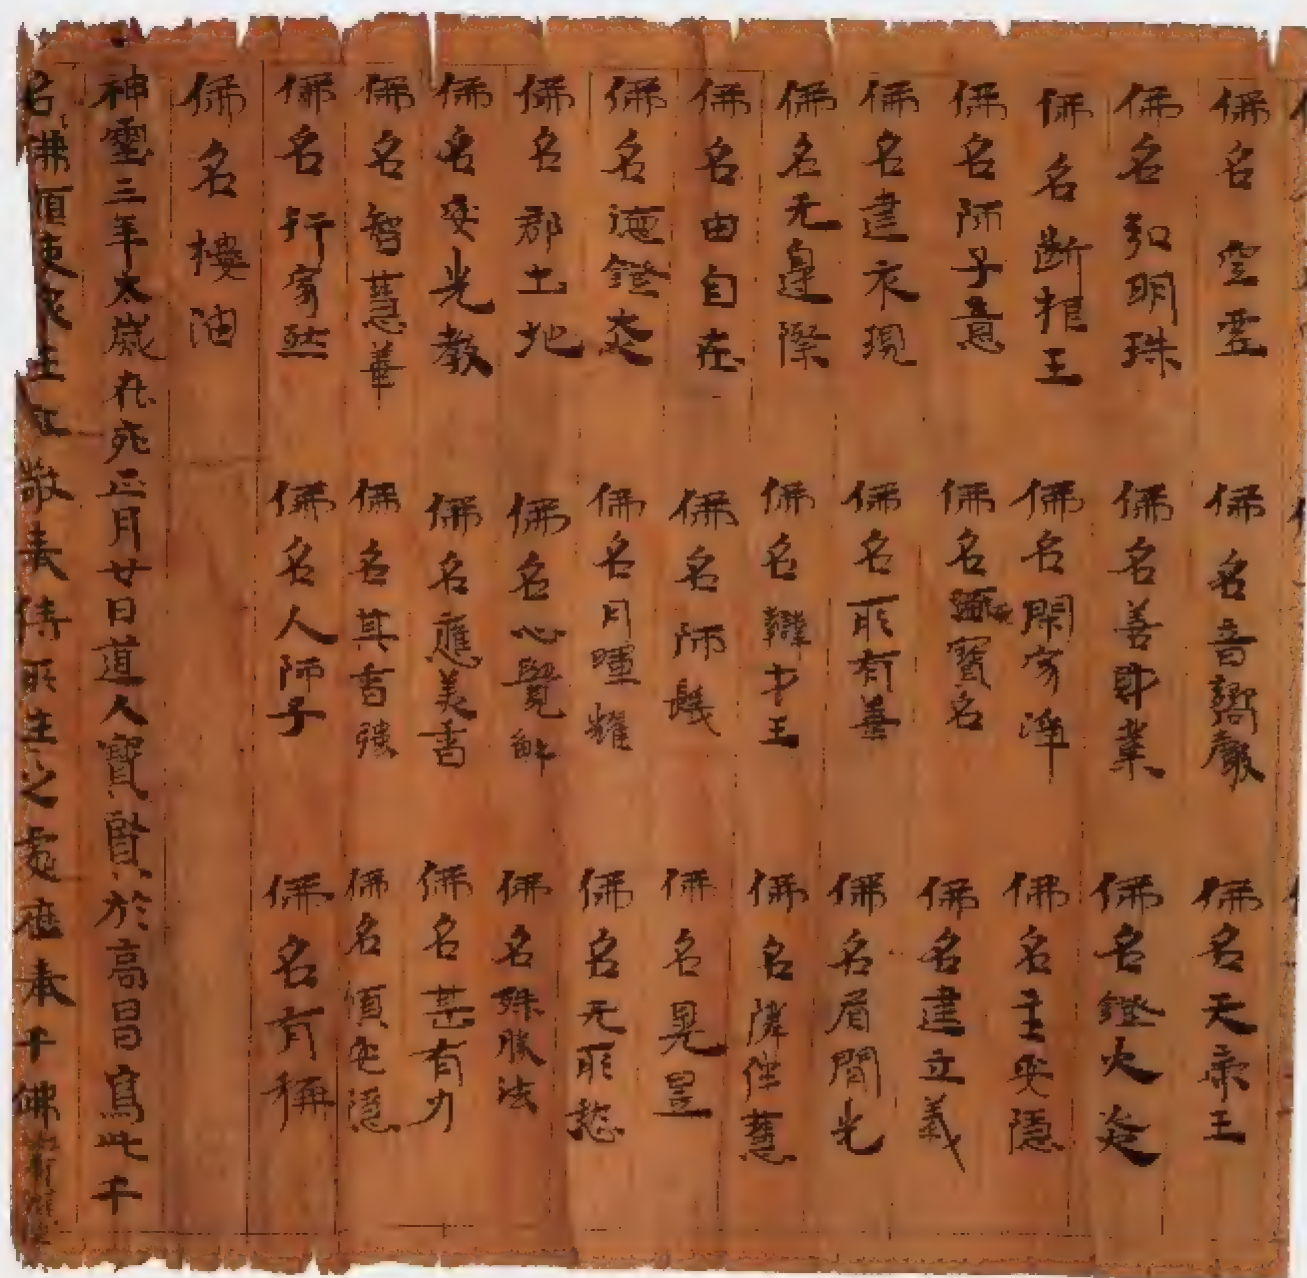 佛名空靈 佛名音嚮嚴 佛名天帝王
佛名知明珠 佛名善財業 佛名鐙火炎
佛名斷根王 佛名閑家淨 佛名主安隱
佛名師子意 佛名寶名 佛名建立義
佛名建衣現 佛名所有善 佛名眉間光
佛名无邊際 佛名辯才王 佛名隣慧
佛名由自在 佛名師髮 佛名晃昱
佛名德鐙炎 佛名月耀 佛名无所愁
佛名郡土地 佛名心覺解 佛名殊勝法
佛名安光教 佛名應美香 佛名甚有力
佛名智慧華 佛名其音强 佛名慎安隱
佛名行家然 佛名人師子 佛名有稱
佛名樓油
神璽三年太歲在卯正月廿日道人寶賢於高昌寫此千
名佛願使衆生敬奉侍所生之處歷奉千佛